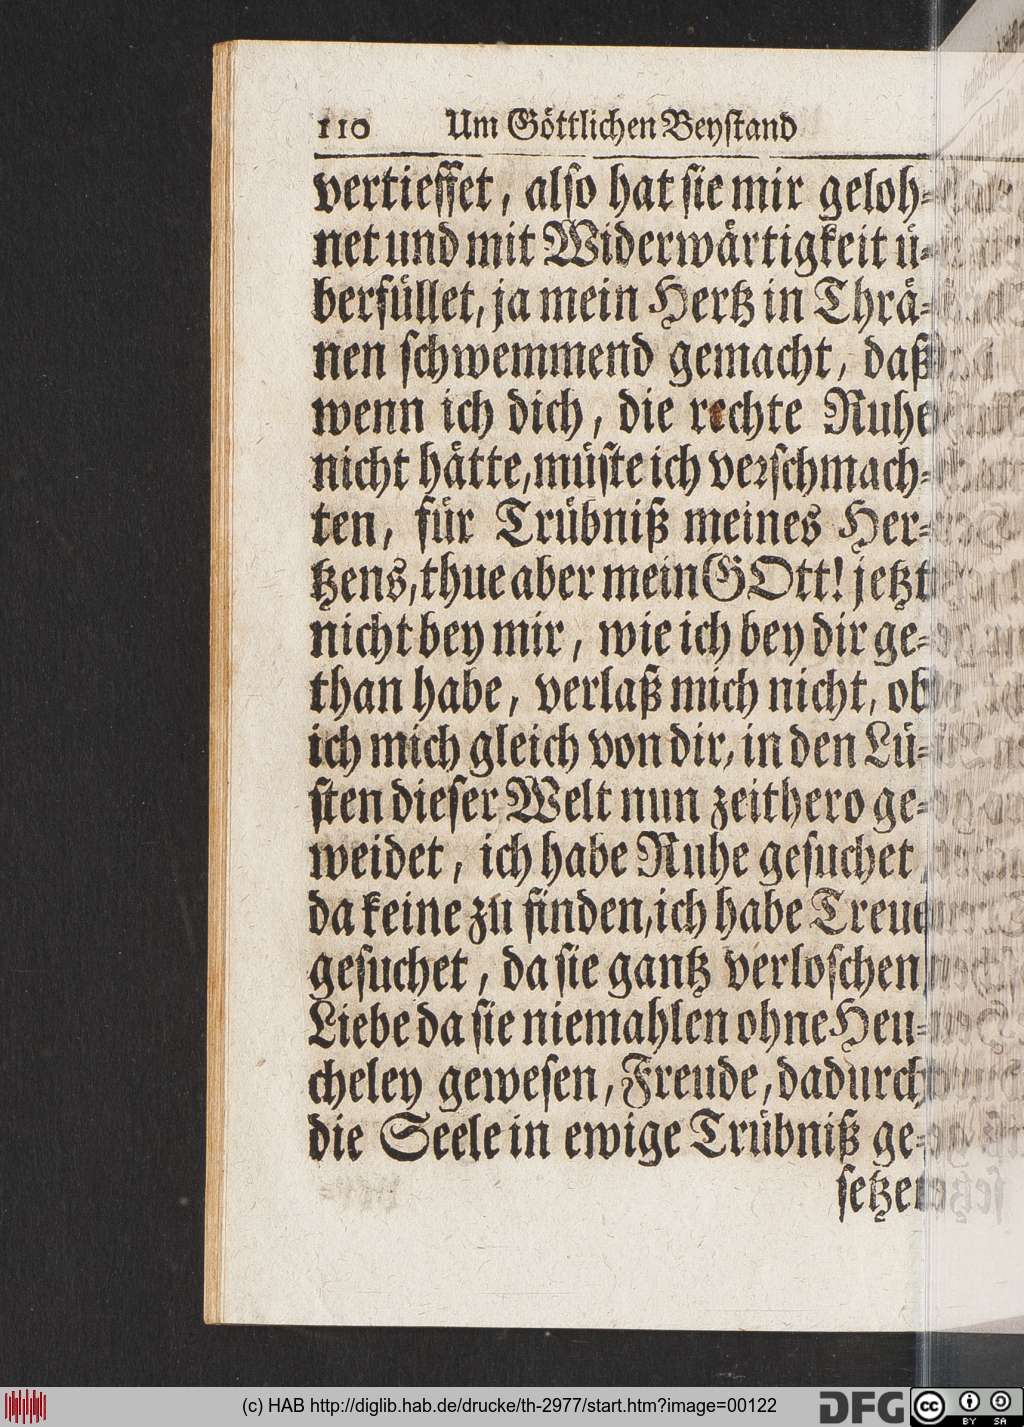 110 Um Göttlichen Beystand
vertieffet, also hat sie mir geloh-
net und mit Widerwärtigkeit ü-
berfüllet, ja mein Hertz in Thrä-
nen schwemmend gemacht, daß
wenn ich dich, die rechte Ruhe
nicht hätte, müste ich verschmach-
ten, für Trübniß meines Her-
tzens, thue aber mein GOtt! jetzt
nicht bey mir, wie ich bey dir ge-
than habe, verlaß mich nicht, ob
ich mich gleich von dir, in den Lü-
sten dieser Welt nun zeithero ge-
weidet, ich habe Ruhe gesuchet,
da keine zu finden, ich habe Treue
gesuchet, da sie gantz verloschen,
Liebe da sie niemahlen ohne Heu-
cheley gewesen, Freude, dadurch
die Seele in ewige Trübniß ge-
setzet
(c) HAB http://diglib.hab.de/drucke/th-2977/start.htm?image=00122
DFG
cc BY SA